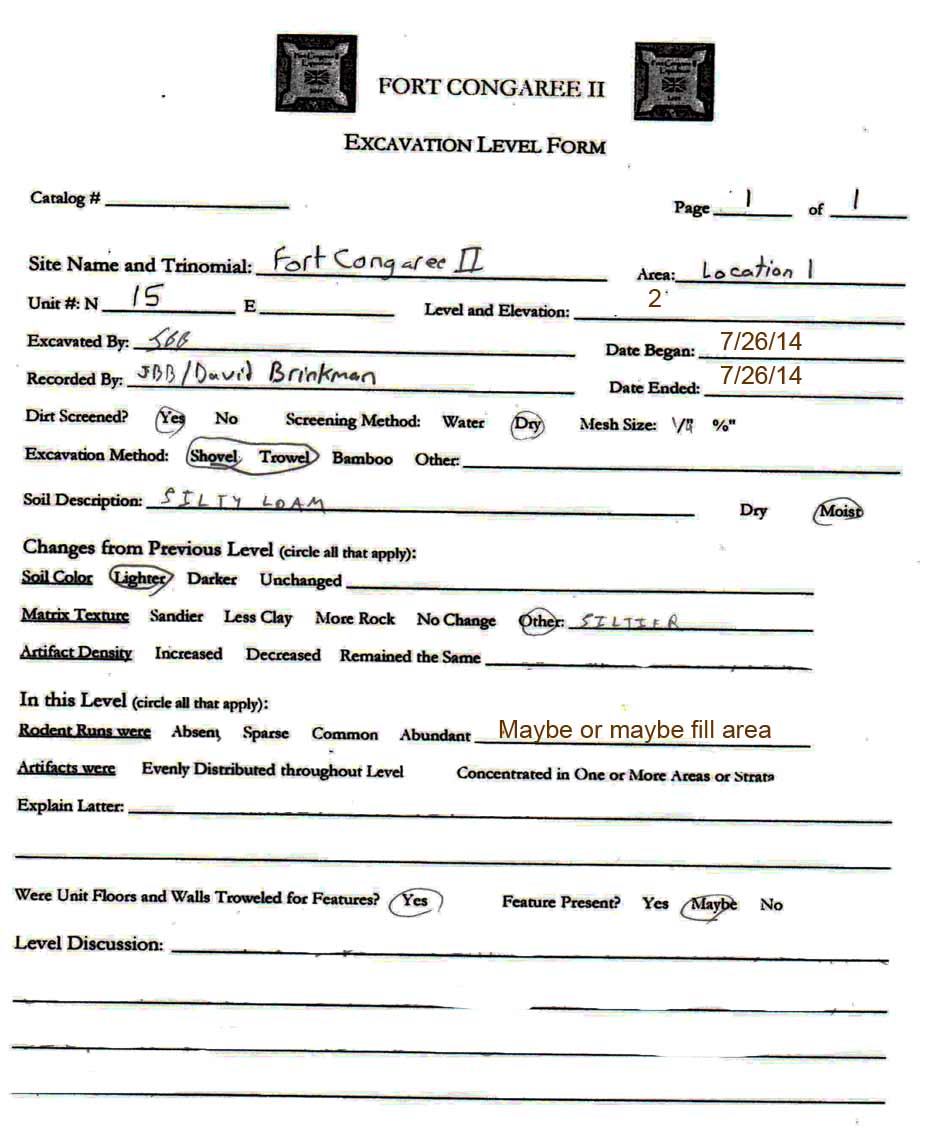 FORT CONGAREE II
EXCAVATION LEVEL FORM
Catalog #
Page 1 of 1
Site Name and Trinomial: Fort Congaree II Area: Location 1
Unit #: N 15 E Level and Elevation: 2
Excavated By: JBB Date Began: 7/26/14
Recorded By: JBB/David Brinkman Date Ended: 7/26/14
Dirt Screened? Yes No Screening Method: Water Dry Mesh Size: 1/4 %"
Excavation Method: Shovel Trowel Bamboo Other:
Soil Description: SILTY LOAM Dry Moist
Changes from Previous Level (circle all that apply):
Soil Color Lighter Darker Unchanged
Matrix Texture Sandier Less Clay More Rock No Change Other: SILTIER
Artifact Density Increased Decreased Remained the Same
In this Level (circle all that apply):
Rodent Runs were Absent Sparse Common Abundant Maybe or maybe fill area
Artifacts were Evenly Distributed throughout Level Concentrated in One or More Areas or Strata
Explain Latter:
Were Unit Floors and Walls Troweled for Features? Yes Feature Present? Yes Maybe No
Level Discussion: